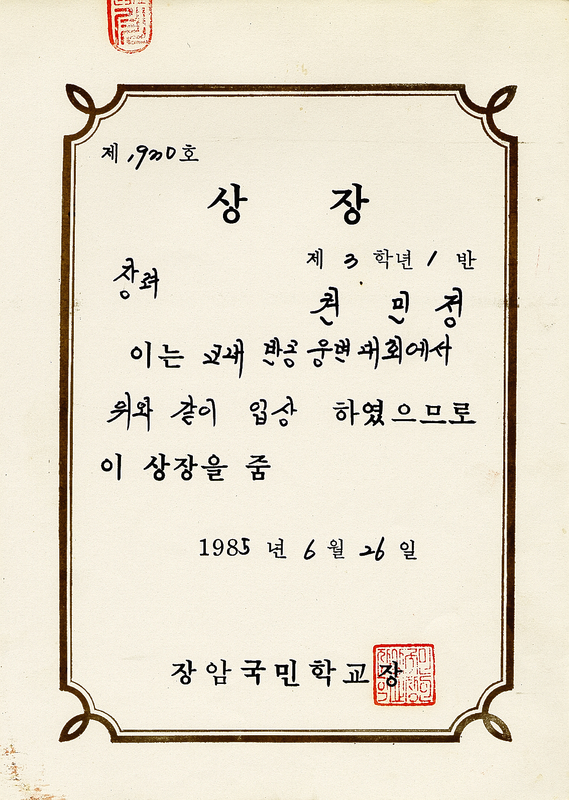 제 1920 호
상 장
제 3 학년 1 반
장려
천 민 정
이는 교내 반공 웅변대회에서
위와 같이 입상 하였으므로
이 상장을 줌
1985 년 6 월 26 일
장암국민학교장